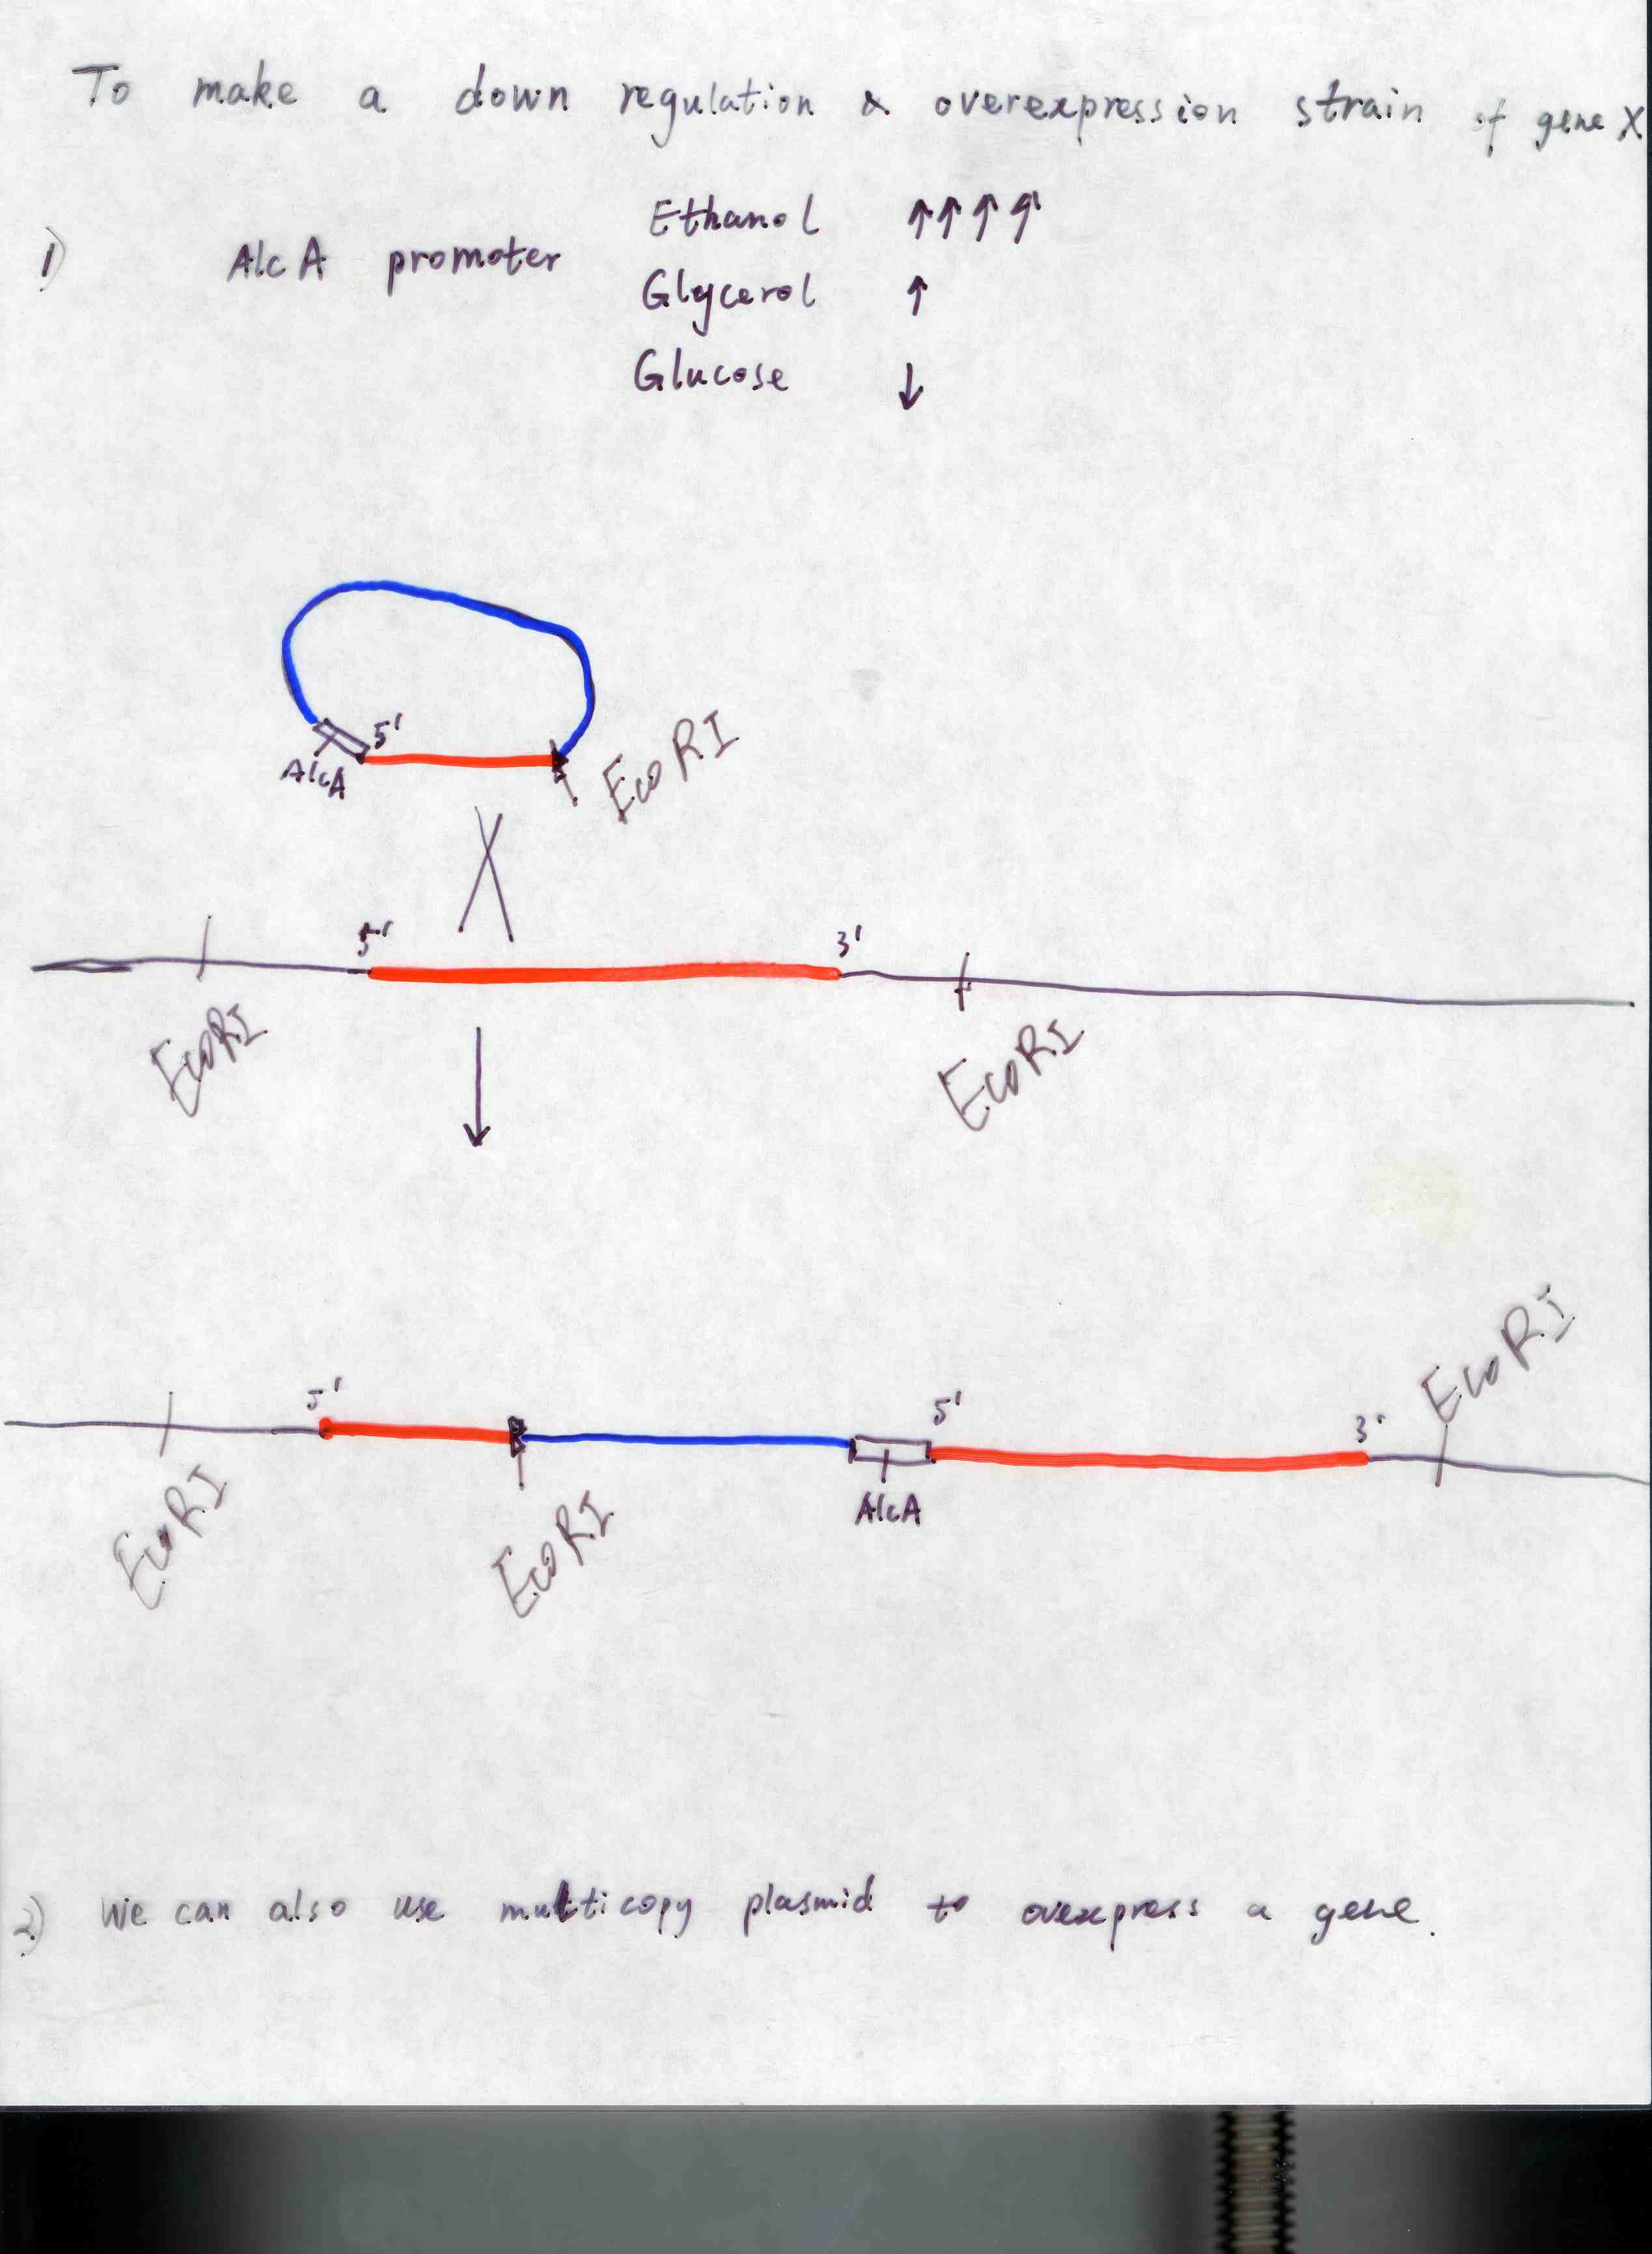 To make a down regulation & overexpression strain of gene X
1) AlcA promoter
Ethanol ↑↑↑↑
Glycerol ↑
Glucose ↓
5'
AlcA
EcoRI
5'
3'
EcoRI
EcoRI
5'
5'
3'
EcoRI
AlcA
EcoRI
EcoRI
2) We can also use multicopy plasmid to ovexpress a gene.